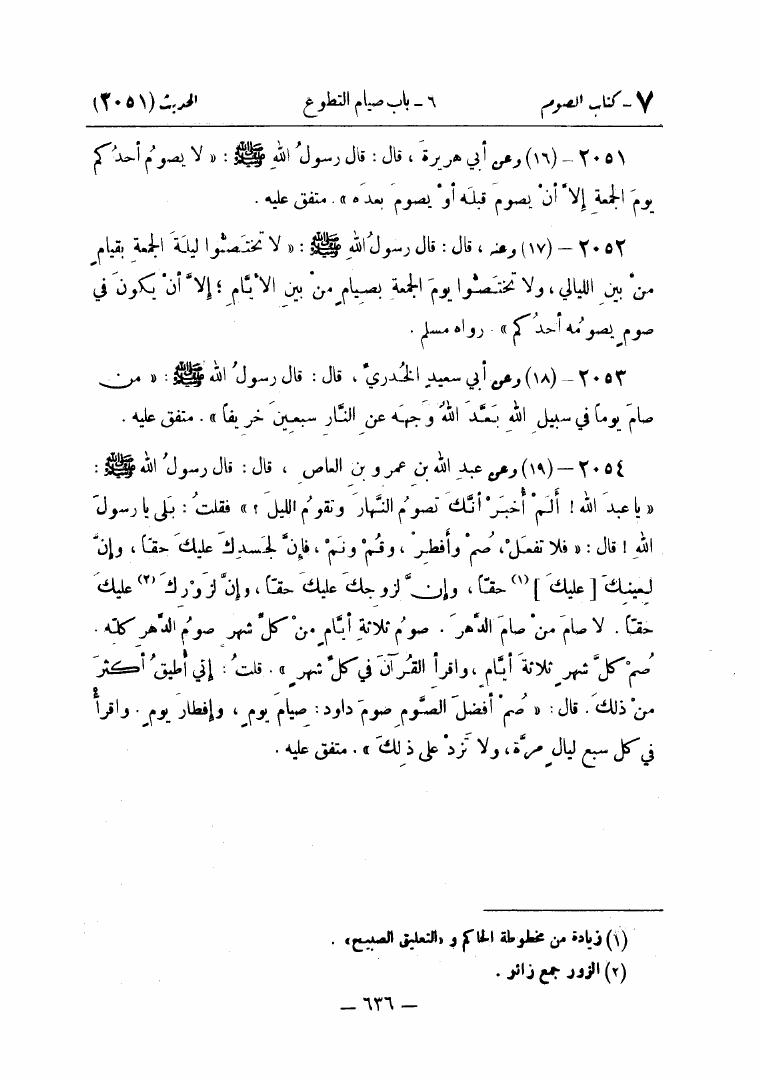 ٧ - كتاب الصوم ٦ - باب صيام التطوع الحديث (٢٠٥١)
٢٠٥١ - (١٦) وعن أبي هريرةَ ، قال : قال رسولُ اللهِ ﷺ : « لا يصومُ أحدُكم
يومَ الجمعةِ إلاَّ أنْ يصومَ قبلَه أوْ يصومَ بعدَه » . متفق عليه .
٢٠٥٢ - (١٧) وعنه ، قال : قال رسولُ اللهِ ﷺ : « لا تختَصُّوا ليلةَ الجمعةِ بقيامٍ
منْ بينِ الليالي ، ولا تختَصُّوا يومَ الجمعةِ بصيامٍ منْ بينِ الأيَّامِ ؛ إلاَّ أنْ يكونَ في
صومٍ يصومُه أحدُكم » . رواه مسلم .
٢٠٥٣ - (١٨) وعن أبي سعيدٍ الخُدريِّ ، قال : قال رسولُ الله ﷺ : « من
صامَ يوماً في سبيلِ اللهِ بَعَّدَ اللهُ وَجهَه عنِ النَّارِ سبعينَ خريفاً » . متفق عليه .
٢٠٥٤ - (١٩) وعن عبدِ الله بنِ عمرو بنِ العاصِ ، قال : قال رسولُ اللهِ ﷺ :
« يا عبدَ الله ! أَلَمْ أُخبَرْ أنَّكَ تصومُ النَّهارَ وتقومُ الليلَ ؟ » فقلتُ : بَلى يا رسولَ
اللهِ ! قال : « فلا تفعلْ ، صُمْ وأَفطِرْ ، وقُمْ ونَمْ ، فإنَّ لجسدِكَ عليكَ حقّاً ، وإنَّ
لعينِكَ [ عليكَ ](١) حقّاً ، وإنَّ لزوجكَ عليكَ حقّاً ، وإنَّ لزَوْرِكَ(٢) عليكَ
حَقّاً . لا صامَ منْ صامَ الدَّهرَ . صومُ ثلاثةِ أيَّامٍ منْ كلِّ شهرٍ صومُ الدَّهرِ كلِّه .
صُمْ كلَّ شهرٍ ثلاثةَ أيَّامٍ ، واقرأ القُرآنَ في كلِّ شهرٍ » . قلتُ : إنِّي أُطيقُ أكثرَ
منْ ذلكَ . قال : « صُمْ أفضلَ الصَّومِ صومَ داود : صيامَ يومٍ ، وإفطارَ يومٍ . واقرأْ
في كل سبع ليالٍ مرَّة ، ولا تَزِدْ على ذلِكَ » . متفق عليه .
(١) زيادة من مخطوطة الحاكم و «التعليق الصبيح» .
(٢) الزور جمع زائر .
— ٦٣٦ —